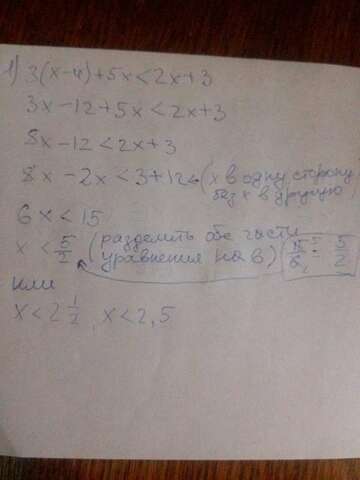 1) 3(x-4)+5x<2x+3
3x-12+5x<2x+3
8x-12<2x+3
8x-2x<3+12 ← (x в одну сторону,
без x в другую)
6x<15
x<5/2 (разделить обе части
уравнения на 6) 15/6=5/2
или
x<2 1/2, x<2,5